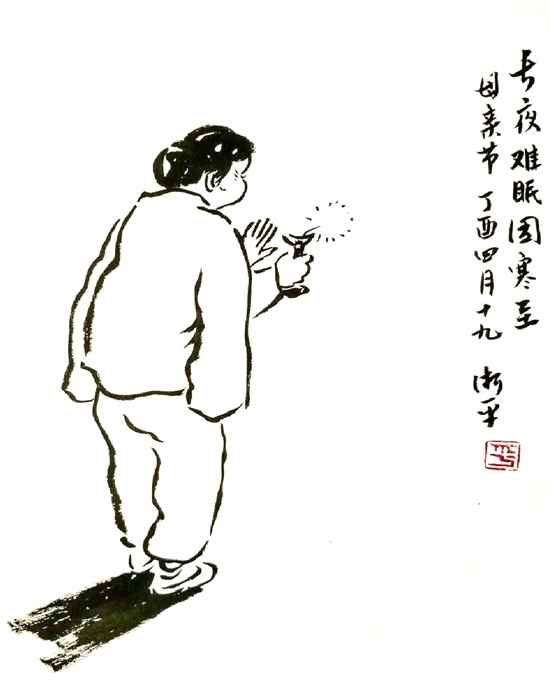 长夜难眠因寒至
母亲节 丁酉四月十九 平